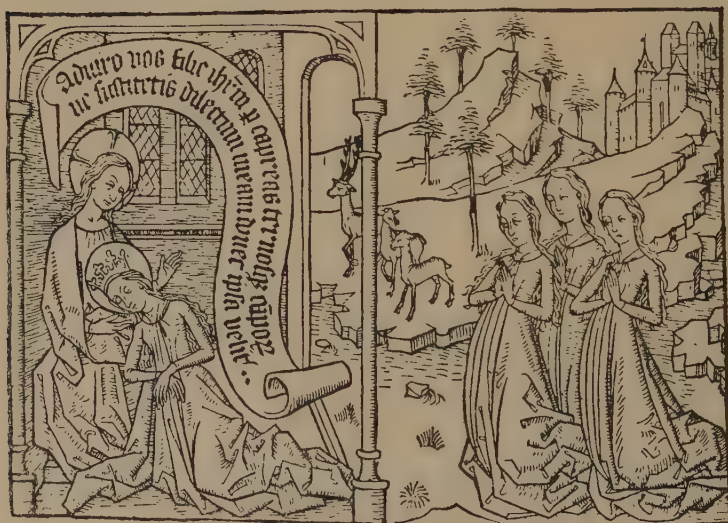 Adiuro vos filie ihrlm p capreas ceruosqz campoz
ne suscitetis dilectam meam donec ipsa velit..